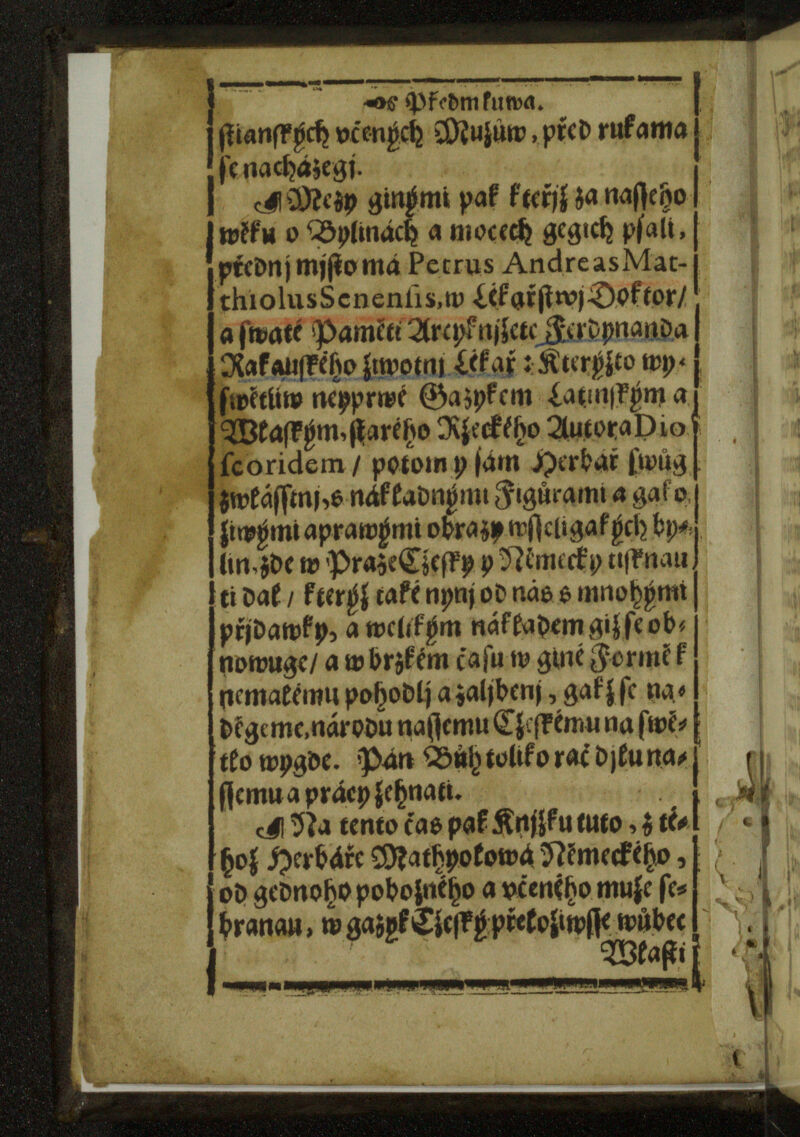 Předmluwa.
stianských včených Mužůw, před rukama
se nacházegj.
Mezy ginými pak kteřjž za nasseho
wěku o Bylinách a mocech gegich psali,
přednj mjsto má Petrus Andreas Mat-
thiolus Senensis, w Lékařstwj Doktor/
a swaté Paměti Arcyknjžete Ferdynanda
Rakauského žiwotnj Lékař: Kterýžto wy-
swětliw neyprwé Gazykem Latinským a
Wlaským, starého Ržeckého Autora Dio
scoridem/ potom y sám Herbář swůg
zwlásstnj, s nákladnými Figůrami a gako
žiwými a prawými obrazy wsseligakých by-
lin, zde w Praze Cžesky y Německy tisknau
ti dal/ kterýž také nynj od nás s mnohými
přjdawky, a welikým nákladem giž se ob-
nowuge/ a w brzkém času w giné Formě k
nemalému pohodlj a zaljbenj, gakž se na-
děgeme, národu nassemu Cžeskému na swě-
tlo wygde. Pán Bůh toliko rač djlu na-
ssemu a prácy žehnati.
Na tento čas pak Knjžku tuto, z té-
hož Herbáře Mathyolowa Německého,
od gednoho pobožného a včeného muže se-
branau, w gazyk Cžeský přeložiwsse wůbec
Wlasti